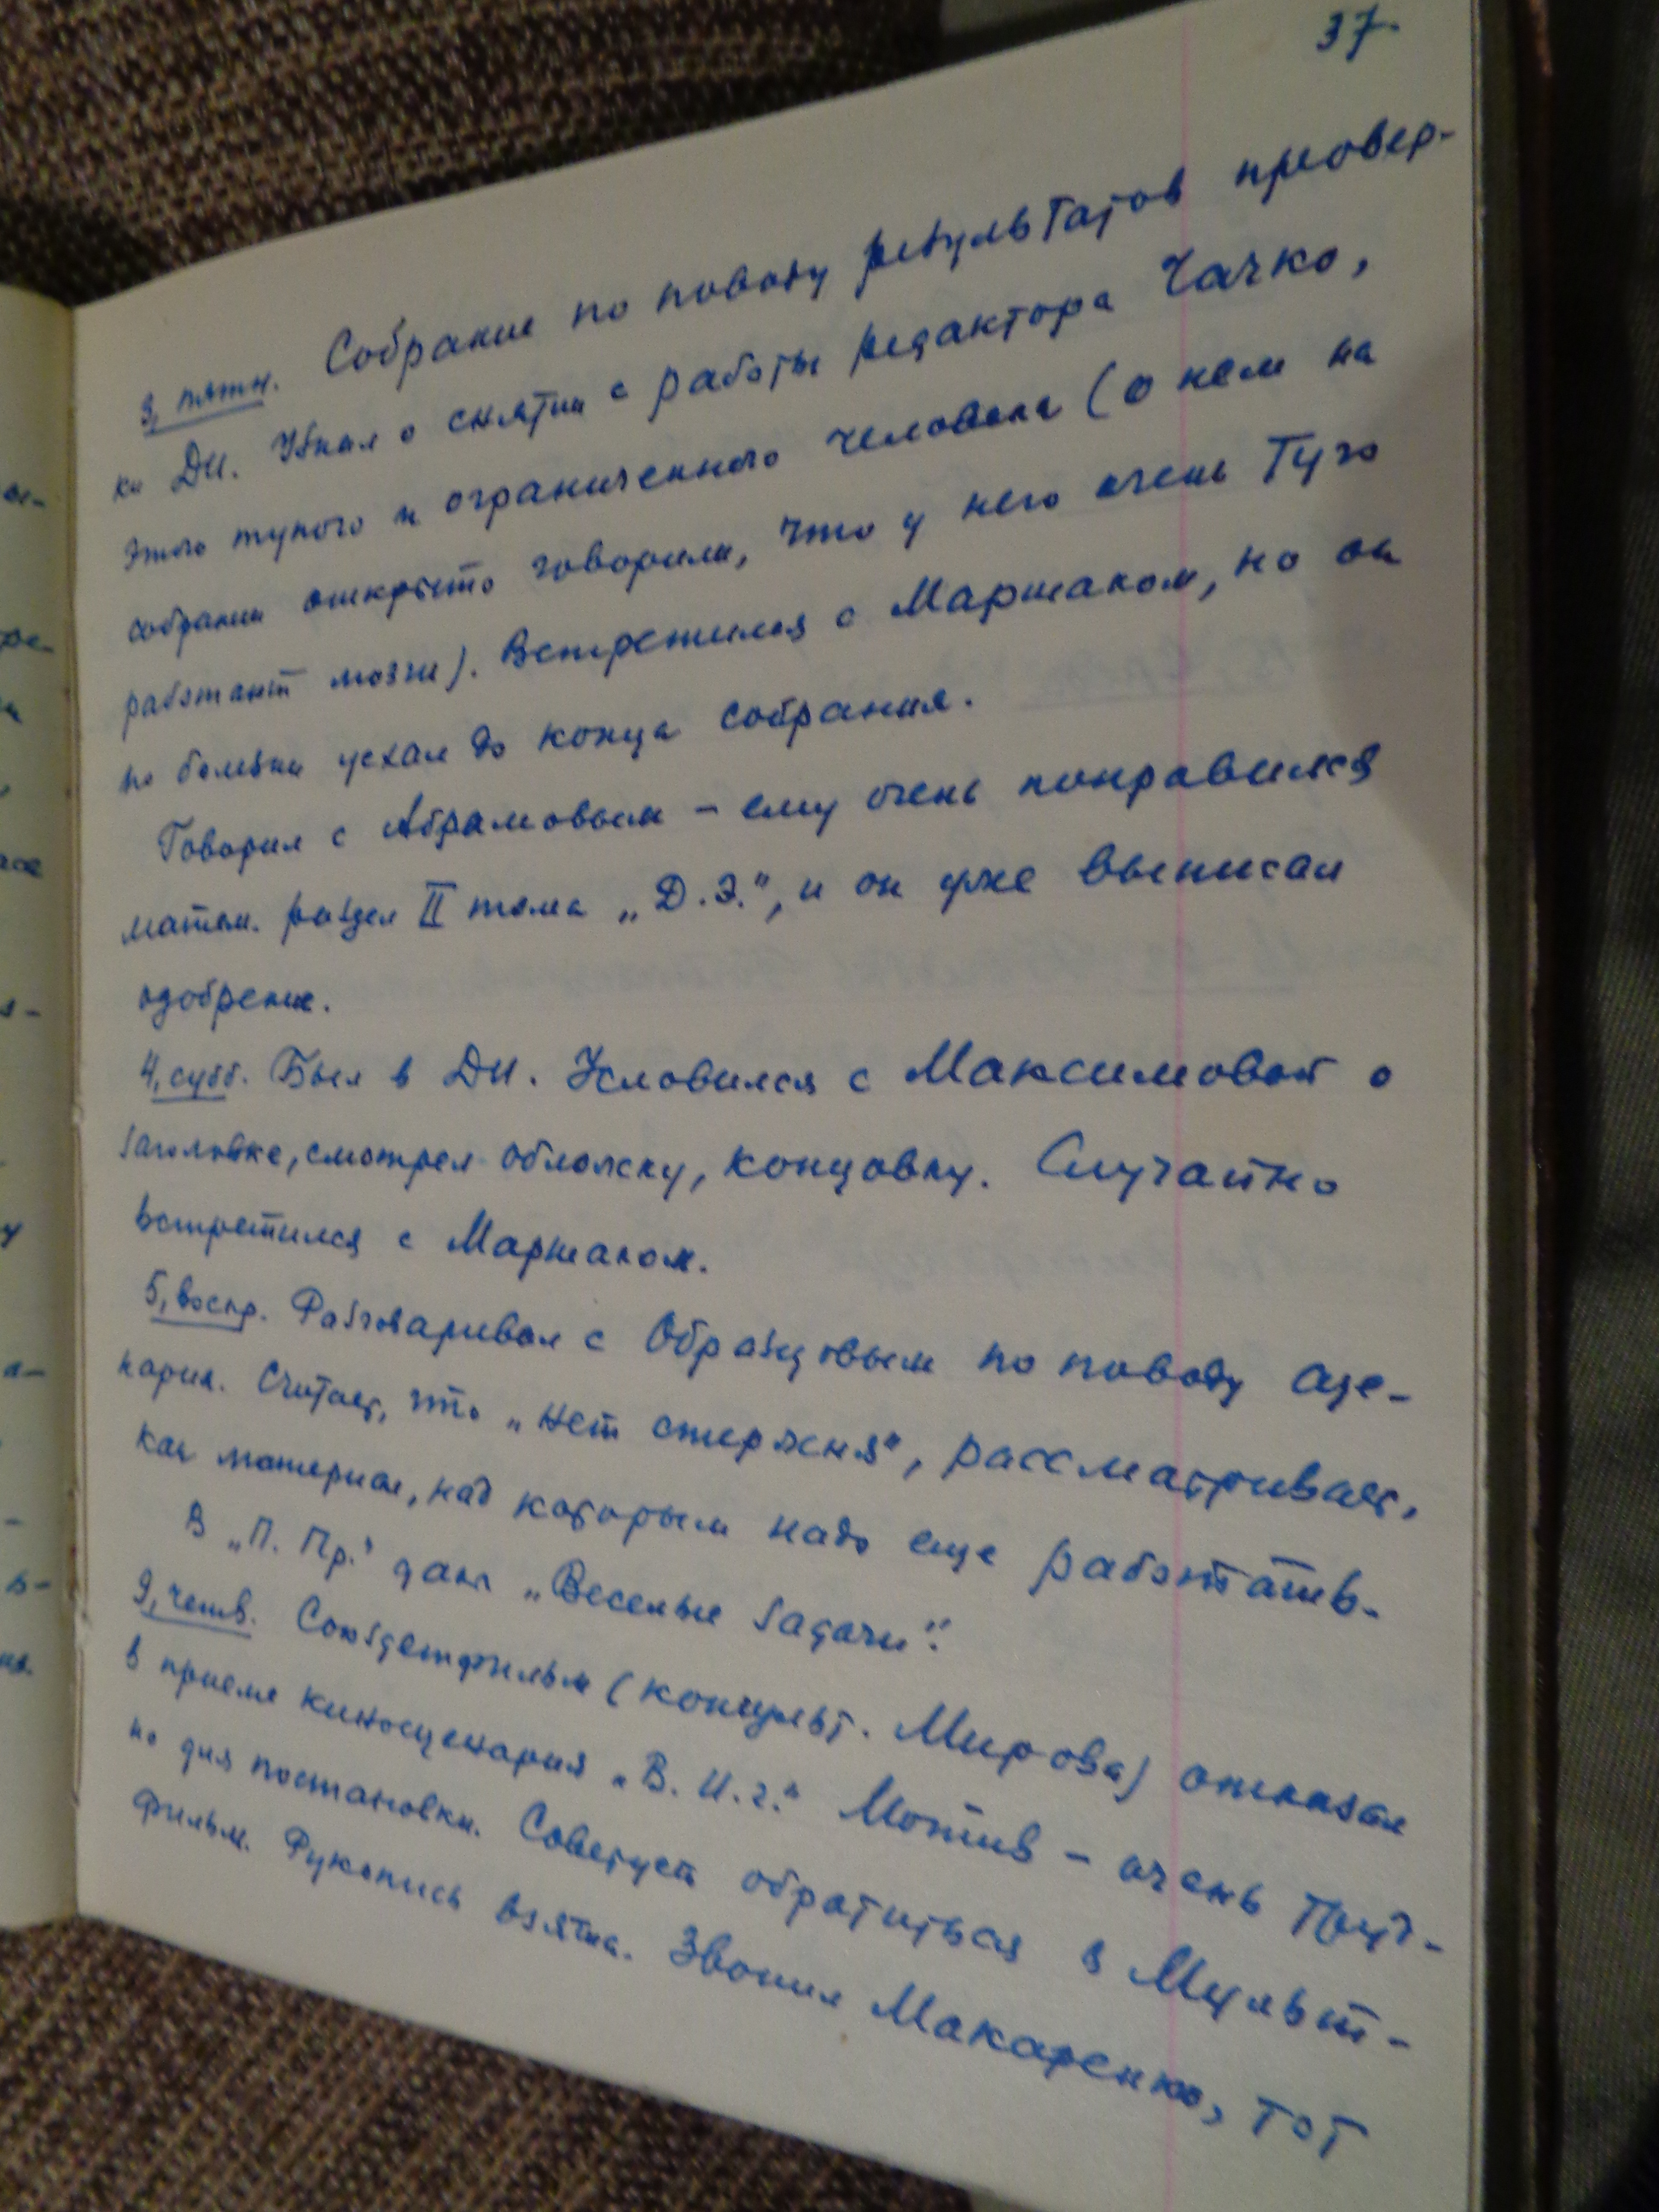 37.
3, пятн. Собрание по поводу результатов провер-
ки ДИ. Узнал о снятии с работы редактора Чачко,
этого тупого и ограниченного человека (о нем на
собрании открыто говорили, что у него очень туго
работают мозги). Встретился с Маршаком, но он
по болезни уехал до конца собрания.
Говорил с Абрамовым – ему очень понравился
матем. раздел II тома „Д.Э.", и он уже выписал
одобрение.
4, субб. Был в ДИ. Условился с Максимовой о
заголовке, смотрел обложку, концовку. Случайно
встретился с Маршаком.
5, воскр. Разговаривал с Образцовым по поводу сце-
нария. Считает, что „нет стержня", рассматривает,
как материал, над которым надо еще работать.
В „П. Пр." дали „Веселые задачи".
9, четв. Союздетфильм (консульт. Мирова) отказал
в приеме киносценария „В. И. г." Мотив – очень труд-
но для постановки. Советует обратиться в Мульт-
фильм. Рукопись взята. Звонил Макаренко, тот